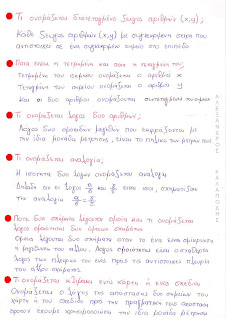 Τι ονομάζεται διατεταγμένο ζεύγος αριθμών (x,y);
Κάθε ζεύγος αριθμών (x,y) με συγκεκριμένη σειρά που
αντιστοιχεί σε ένα συγκεκριμένο σημείο στο επίπεδο
Ποια είναι η τετμημένη και ποια η τεταγμένη του;
Τετμημένη του σημείου ονομάζεται ο αριθμός x
Τεταγμένη του σημείου ονομάζεται ο αριθμός y
Και οι δυο αριθμοί ονομάζονται συντεταγμένες του σημείου
Τι ονομάζεται λόγος δυο αριθμών;
Λόγος δυο ομοειδών μεγεθών που εκφράζονται με
την ίδια μονάδα μέτρησης, είναι το πηλίκο των μέτρων τους
Τι ονομάζεται αναλογία;
Η ισότητα δυο λόγων ονομάζεται αναλογία
δηλαδή αν οι λόγοι α/β και γ/δ είναι ίσοι, σχηματίζουν
την αναλογία α/β = γ/δ
Πότε δυο σχήματα λέγονται όμοια και τι ονομάζεται
λόγος ομοιότητας δυο όμοιων σχημάτων
Όμοια λέγονται δυο σχήματα όταν το ένα είναι σμίκρυνση
ή μεγέθυνση του άλλου. Λόγος ομοιότητας είναι ο σταθερός
λόγος των πλευρών του ενός προς τις αντίστοιχες πλευρές
του άλλου σχήματος
Τι ονομάζεται κλίμακα ενός χάρτη ή ενός σχεδίου
Ονομάζεται ο λόγος της απόστασης δυο σημείων του
χάρτη ή του σχεδίου προς την πραγματική τους απόσταση
εφόσον έχουμε χρησιμοποιήσει την ίδια μονάδα μέτρησης
ΑΛΕΞΑΝΔΡΟΣ